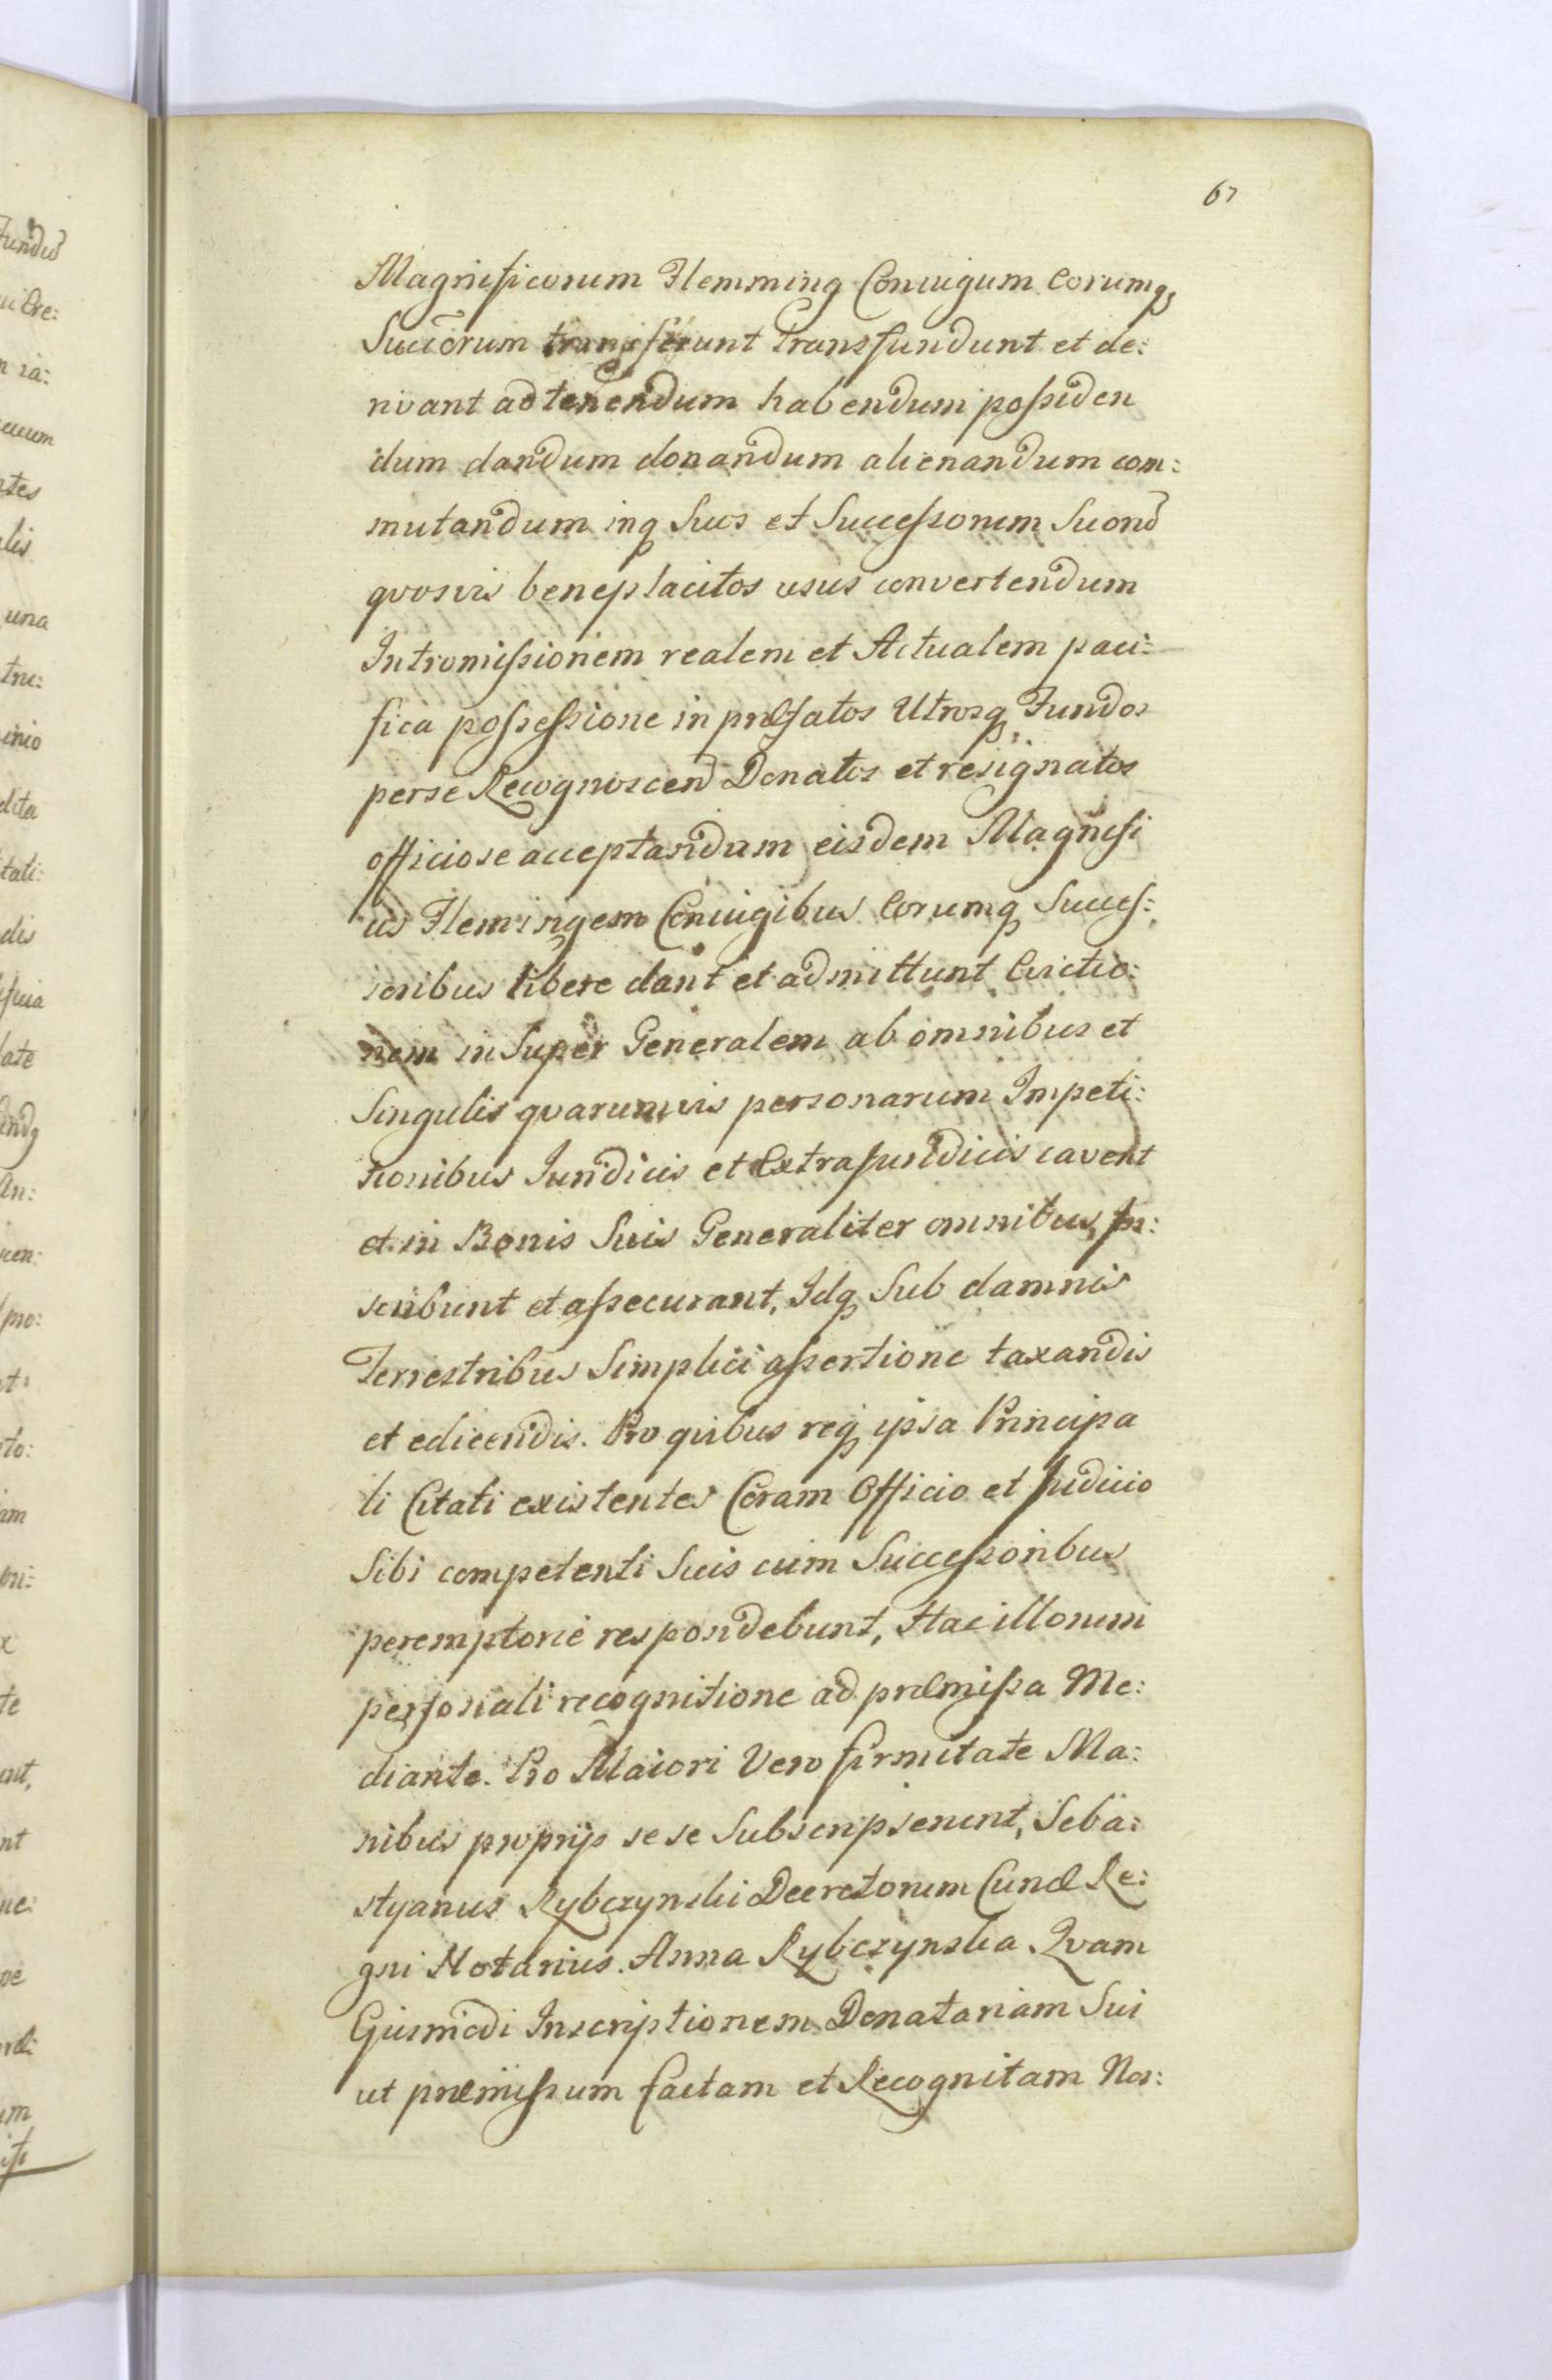 67
Magnificorum Flemming Coniugum Eorumq;
Succorum transferunt transfundunt et de:
rivant ad tenendum habendum possiden
dum dandum donandum alienandum com:
mutandum inq Suos et Successorum Suord
qvosvis beneplacitos usus convertendum
Intromissionem realem et Actualem paci:
fica possessione in præfatos Utrosq Fundos
per se Recognoscend Donatos et resignatos
officiose acceptandum eisdem Magnifi
cis Flemingem Coniugibus Eorumq Succes:
soribus libere dant et admittunt Evictio:
nem in Super Generalem ab omnibus et
Singulis qvarumvis personarum Impeti:
tionibus Juridicis et Extrajuridicis cavent
et in Bonis Suis Generaliter omnibus, In:
scribunt et assecurant, Idq Sub damnis
Terrestribus Simplici assertione taxandis
et edicendis. Pro qvibus req ipsa Principa
li Citati existentes Coram Officio et Judicio
Sibi competenti Suis cum Successoribus
peremptorie respondebunt, Hac illorum
personali recognitione ad præmissa Me:
diante. Pro Maiori Vero firmitate Ma:
nibus proprijs se se Subscripserunt, Seba:
styanus Rybczynski Decretorum Curiæ Re:
gni Notarius. Anna Rybczynska. Qvam
Ejusmodi Inscriptionem Donatoriam Sui
ut præmissum factam et Recognitam Nos: